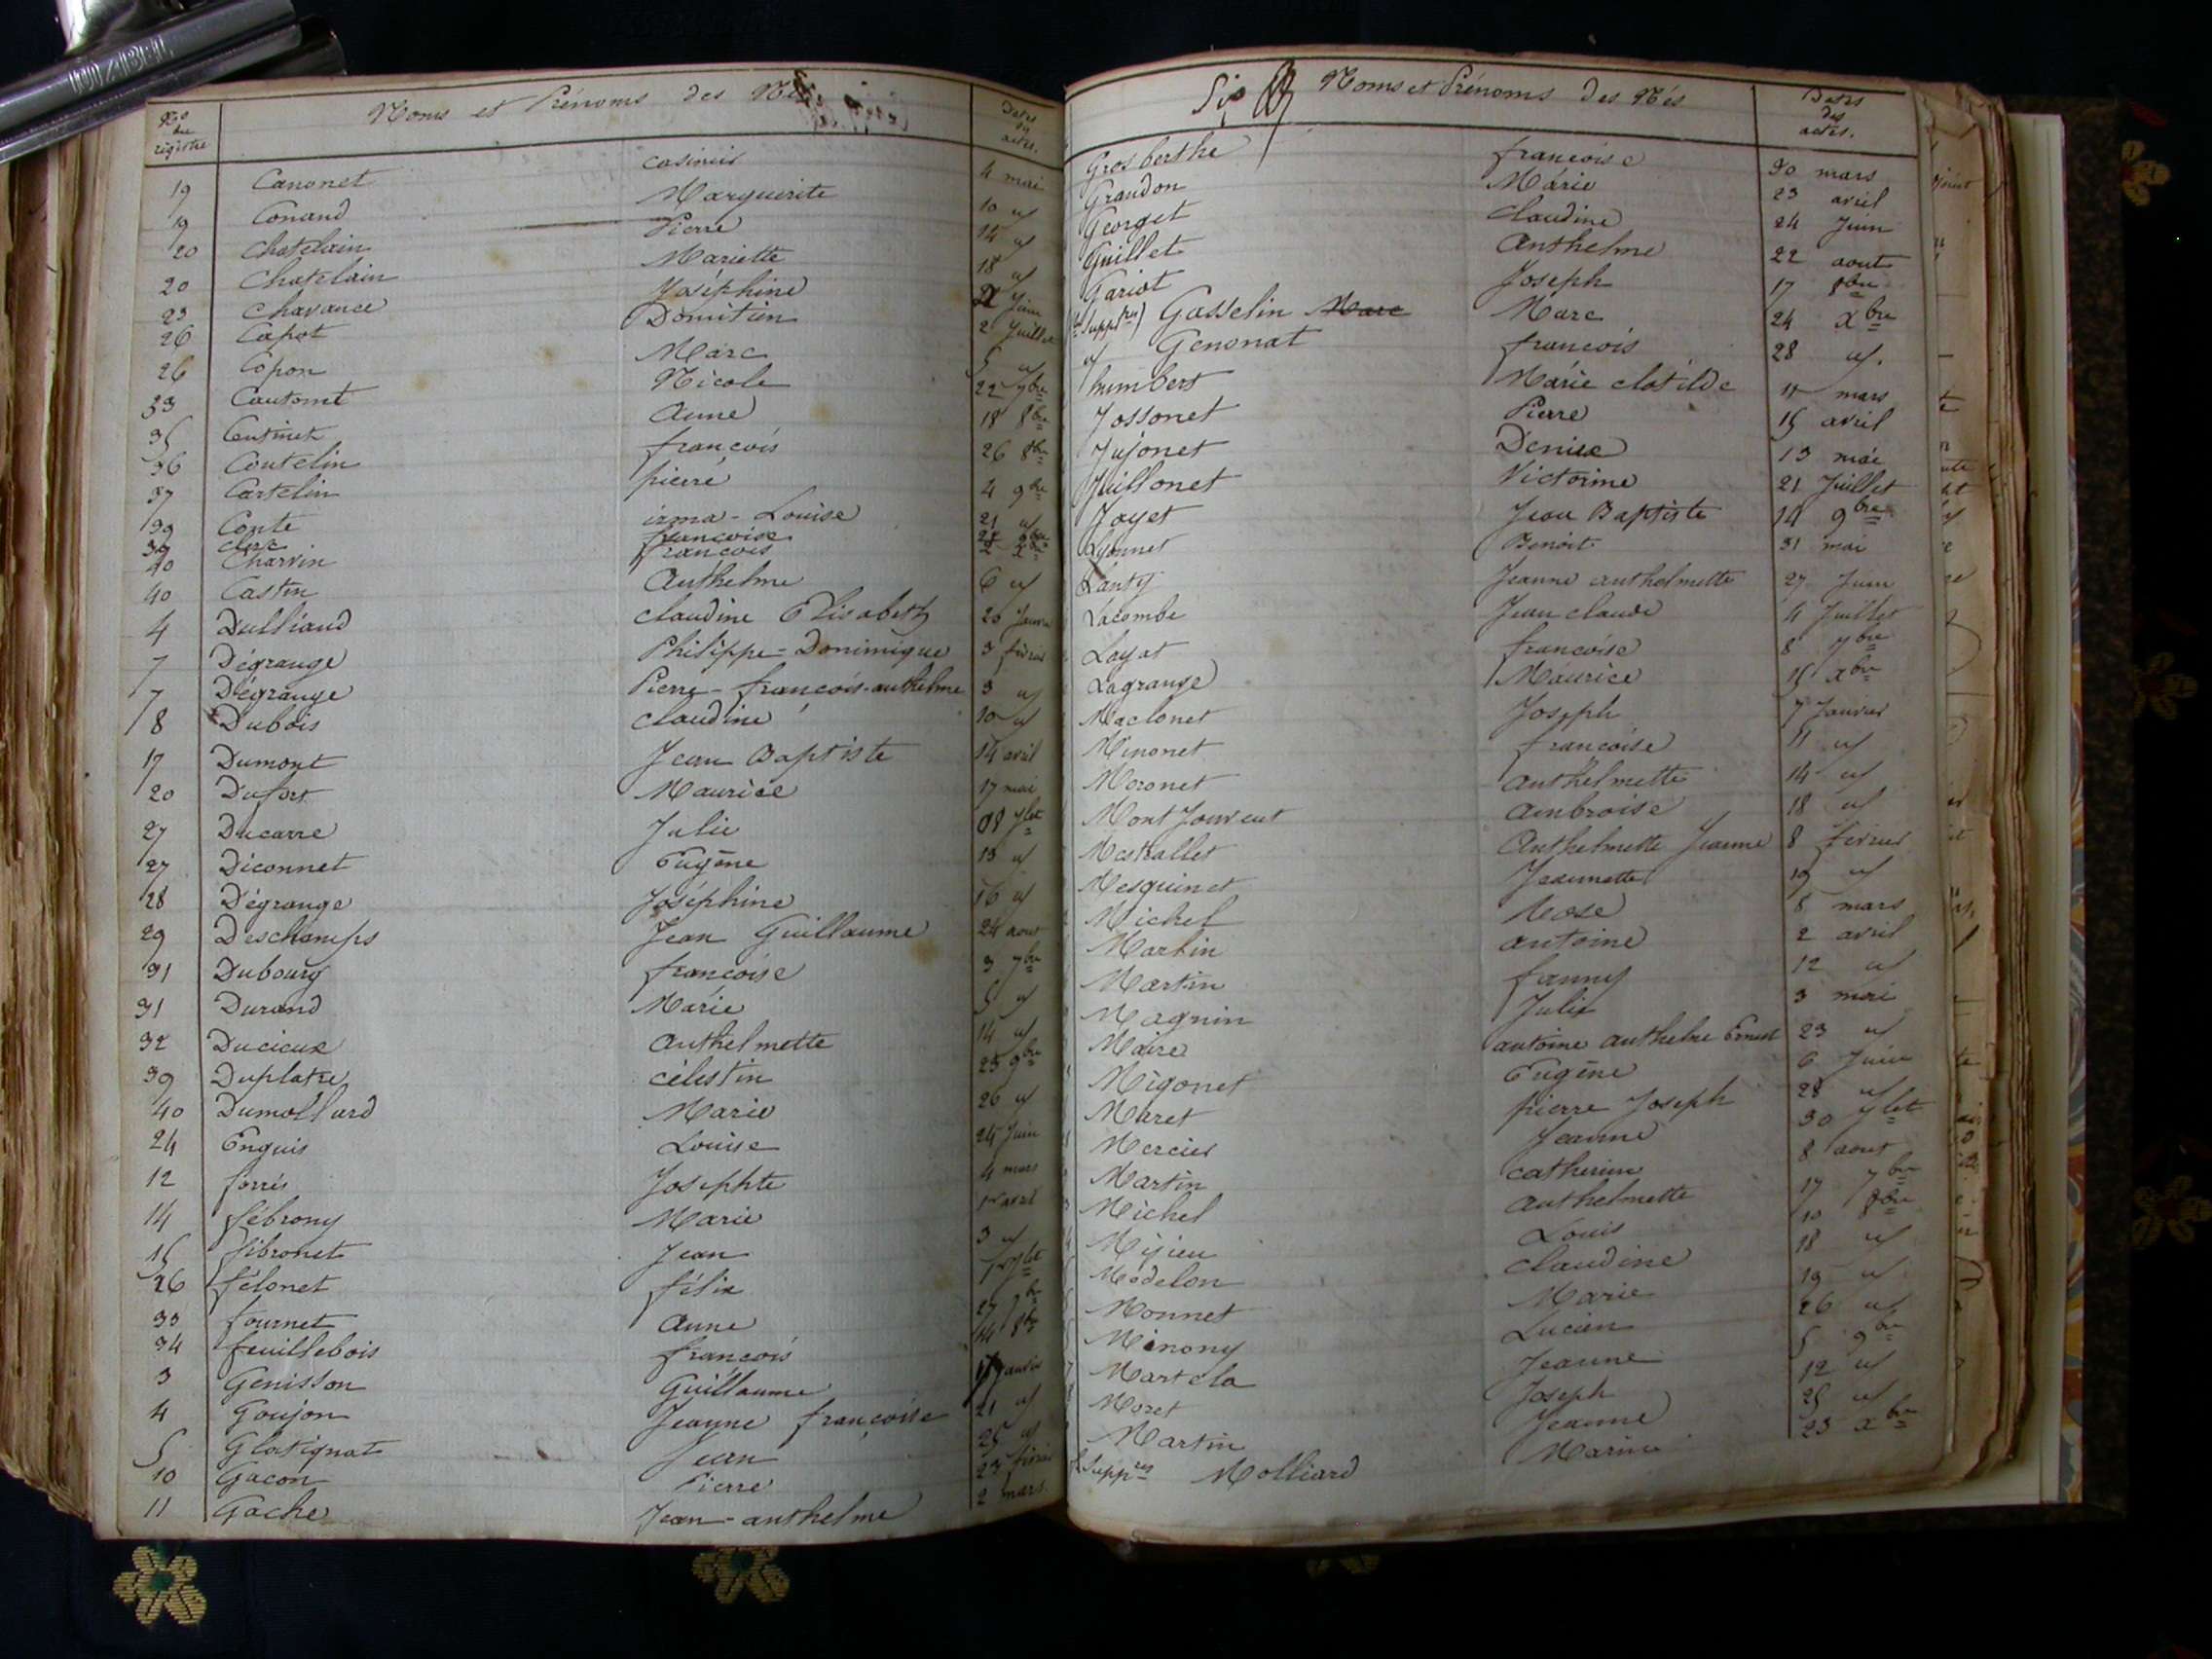 Nos du registre | Noms et Prénoms des Nés | Dates des actes.
19 Canonet casimir 4 mai
19 Conand Marguerite 10 "
20 Chatelain Pierre 14 "
20 Chatelain Mariette 18 "
23 Chavance Joséphine Juin
26 Capot Domitien 2 Juillet
26 Copon Marc 5 "
33 Nicole 22 7bre
35 Anne 18 8bre
36 Coutelin françois 26 8bre
37 Cartelin pierre 4 9bre
39 Conte irma-Louise 21 "
39 clerc françoise
40 Charvin françois 2 Xbre
40 Castin Anthelme 6 "
4 Dulliaud claudine Elisabeth 20 Janvier
7 Dégrange Philippe-Dominique 3 février
7 Dégrange Pierre-françois-anthelme 3 "
8 Dubois claudine 10 "
17 Dumont Jean Baptiste 14 avril
20 Dufort Maurice 17 mai
27 Ducarre Julie 08 Jlet
27 Diconnet Eugène 13 "
28 Dégrange Joséphine 16 "
29 Deschamps Jean Guillaume 24 aout
31 Dubourg françoise 3 7bre
31 Durand Marie 5 "
32 Ducieux Anthelmette 14 "
39 Duplatre célestin 25 9bre
40 Dumollard Marie 26 "
24 Enguis Louise 24 Juin
12 forrés Josephte 4 mars
14 fébrony Marie 1er avril
15 fibronet Jean 3 "
26 félonet félix 1er Jlet
33 fournet Anne 27 7bre
34 feuillebois françois 14 8bre
3 Génisson Guillaume Janvier
4 Goujon Jeanne françoise 21 "
5 Glatignat Jean 25 "
10 Gacon Pierre 23 février
11 Gache Jean-anthelme 2 mars
Noms et Prénoms des Nés | Dates des actes.
Grosberthe françoise 30 mars
Grandon Marie 23 avril
Georget claudine 24 Juin
Guillet Anthelme 22 aout
Gariot Joseph 17 8bre
Gasselin Marc Marc 24 Xbre
" Genonat françois 28 "
humbert Marie clotilde 11 mars
Jossonet Pierre 15 avril
Jujonet Denise 13 mai
Juillonet Victorine 21 Juillet
Joyet Jean Baptiste 14 9bre
Lyonnet Benoit 31 mai
Lanty Jeanne anthelmette 27 Juin
Lacombe Jean claude 4 Juillet
Layat françoise 8 7bre
Lagrange Maurice 15 Xbre
Maclonet Joseph 7 Janvier
Minonet françoise 11 "
Moronet Anthelmette 14 "
Mont Jouvent Ambroise 18 "
Mestrallet Anthelmette Jeanne 8 février
Mesguinet Jeannette 19 "
Michel Rose 8 mars
Martin Antoine 2 avril
Martin fanny 12 "
Magnin Julie 3 mai
Maire antoine anthelme Ernest 23 "
Migonet Eugène 6 Juin
Maret pierre Joseph 28 "
Mercier Jeanne 30 Jlet
Martin catherine 8 aout
Michel Anthelmette 17 7bre
Mijieu Louis 10 8bre
Modelon claudine 18 "
Monnet Marie 19 "
Minony Lucien 26 "
Martela Jeanne 5 9bre
Moret Joseph 12 "
Martin Jeanne 25 "
Molliard Marie 23 Xbre